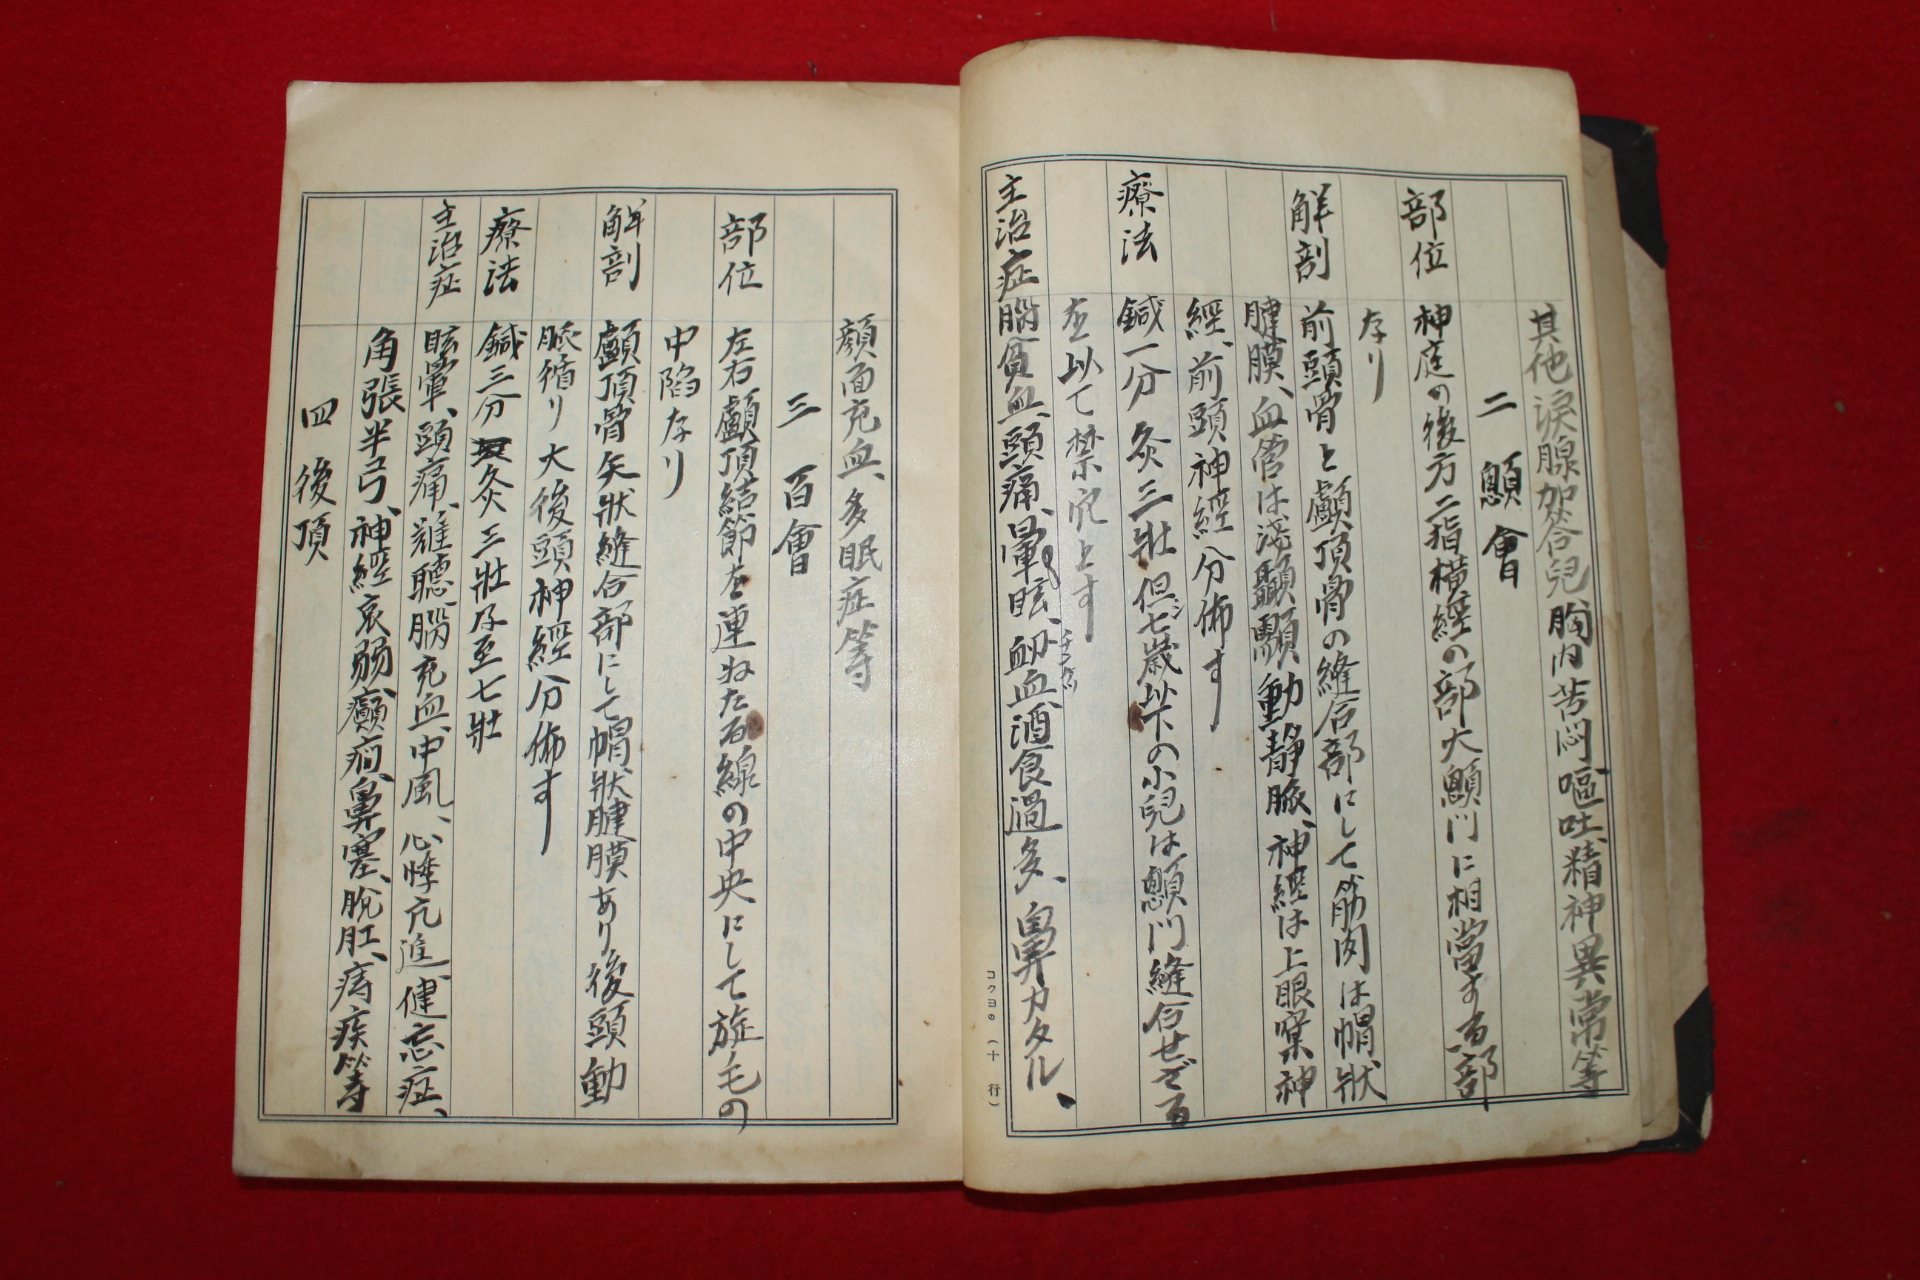 其他淚腺加答兒胸内苦悶嘔吐、精神異常等
二 顖會
部位 神庭の後方二指横經の部大顖門に相當する部
なり
解剖 前頭骨と顱頂骨の縫合部にして筋肉は帽狀
腱膜、血管は淺顳顬動静脉、神經は上眼窠神
經、前頭神經分佈す
療法 鍼一分 灸三壯 但シ七歲以下の小兒は顖門縫合せざる
を以て禁穴とす
主治症 脳貧血、頭痛、暈眩、衄血、酒食過多、鼻カタル、
コクヨの（十 行）
顔面充血、多眠症等
三 百會
部位 左右顱頂結節を連ねたる線の中央にして旋毛の
中陷なり
解剖 顱頂骨矢狀縫合部にして帽狀腱膜あり後頭動
脈循り大後頭神經分佈す
療法 鍼三分 灸三壯乃至七壯
主治症 眩暈、頭痛、難聴、脳充血、中風、心悸亢進、健忘症、
角張半弓、神經衰弱、癲癇、鼻塞、脫肛、痔疾等
四 後頂